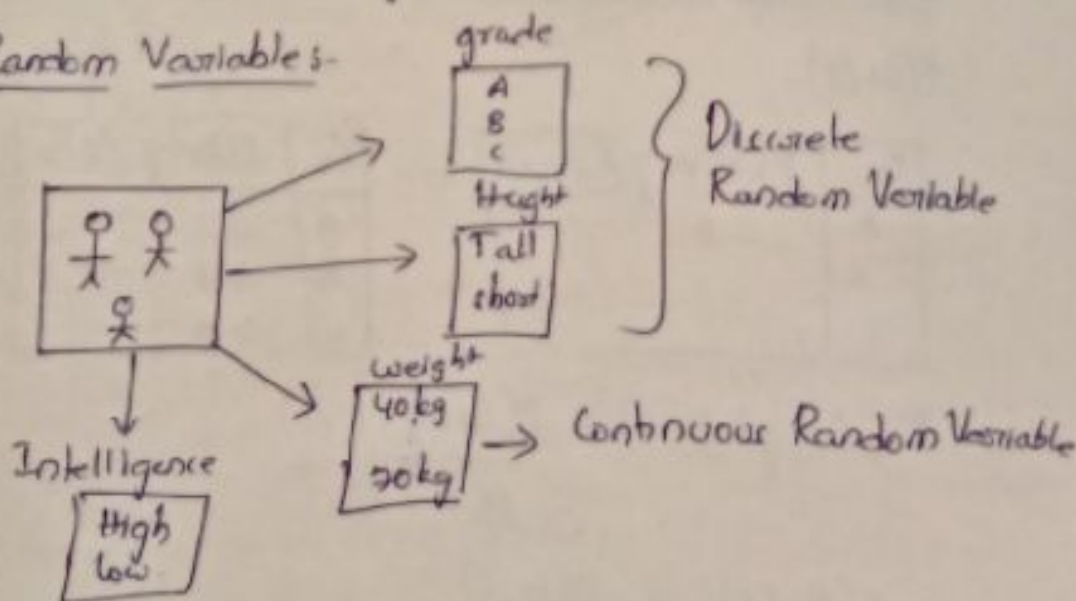 Random Variables-
grade
A
B
C
Height
Tall
short
Discrete
Random Variable
weight
40kg
70kg
Continuous Random Variable
Intelligence
High
low